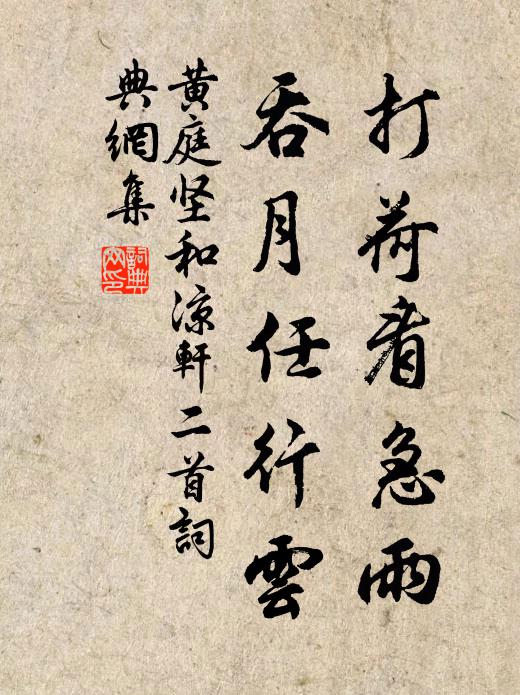 打荷看急雨
吞月任行雲
黄庭坚和涼軒二首詞
典網集
詞典